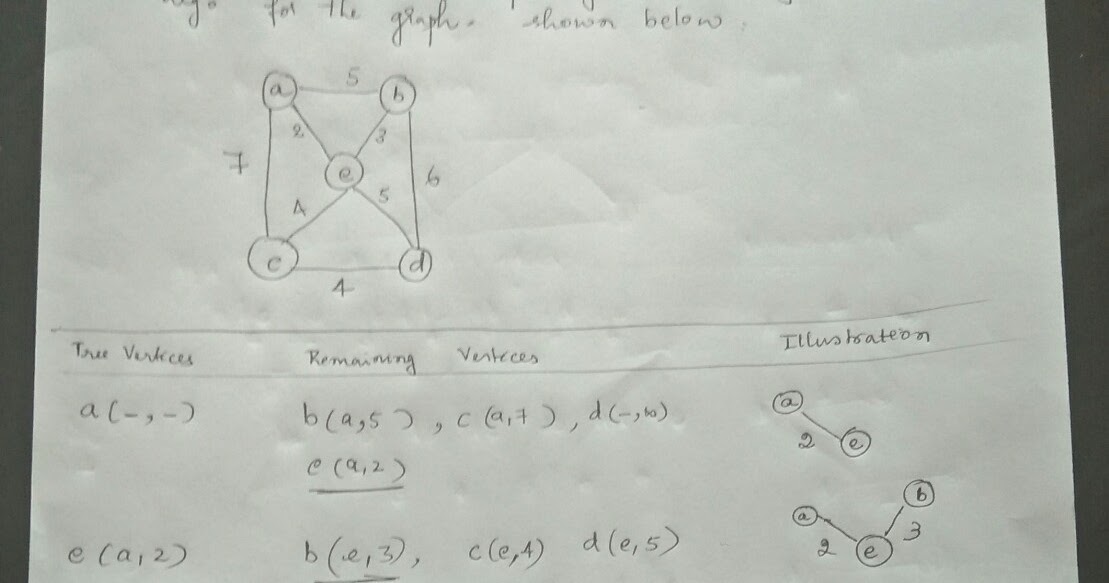 for the graph. shown below.
a 5 b
2 3
7 e 6
4 5
c d
4
Tree Vertices Remaining Vertices Illustration
a(-,-) b(a,5), c(a,7), d(-,∞) a
e(a,2) 2 e
b
a 3
e(a,2) b(e,3), c(e,4) d(e,5) 2 e